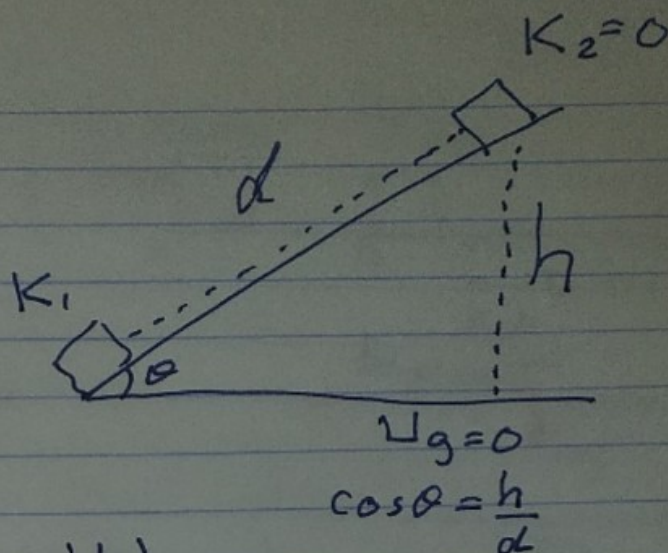 K₂=0
d
h
K₁
θ
Ug=0
cosθ = h/d